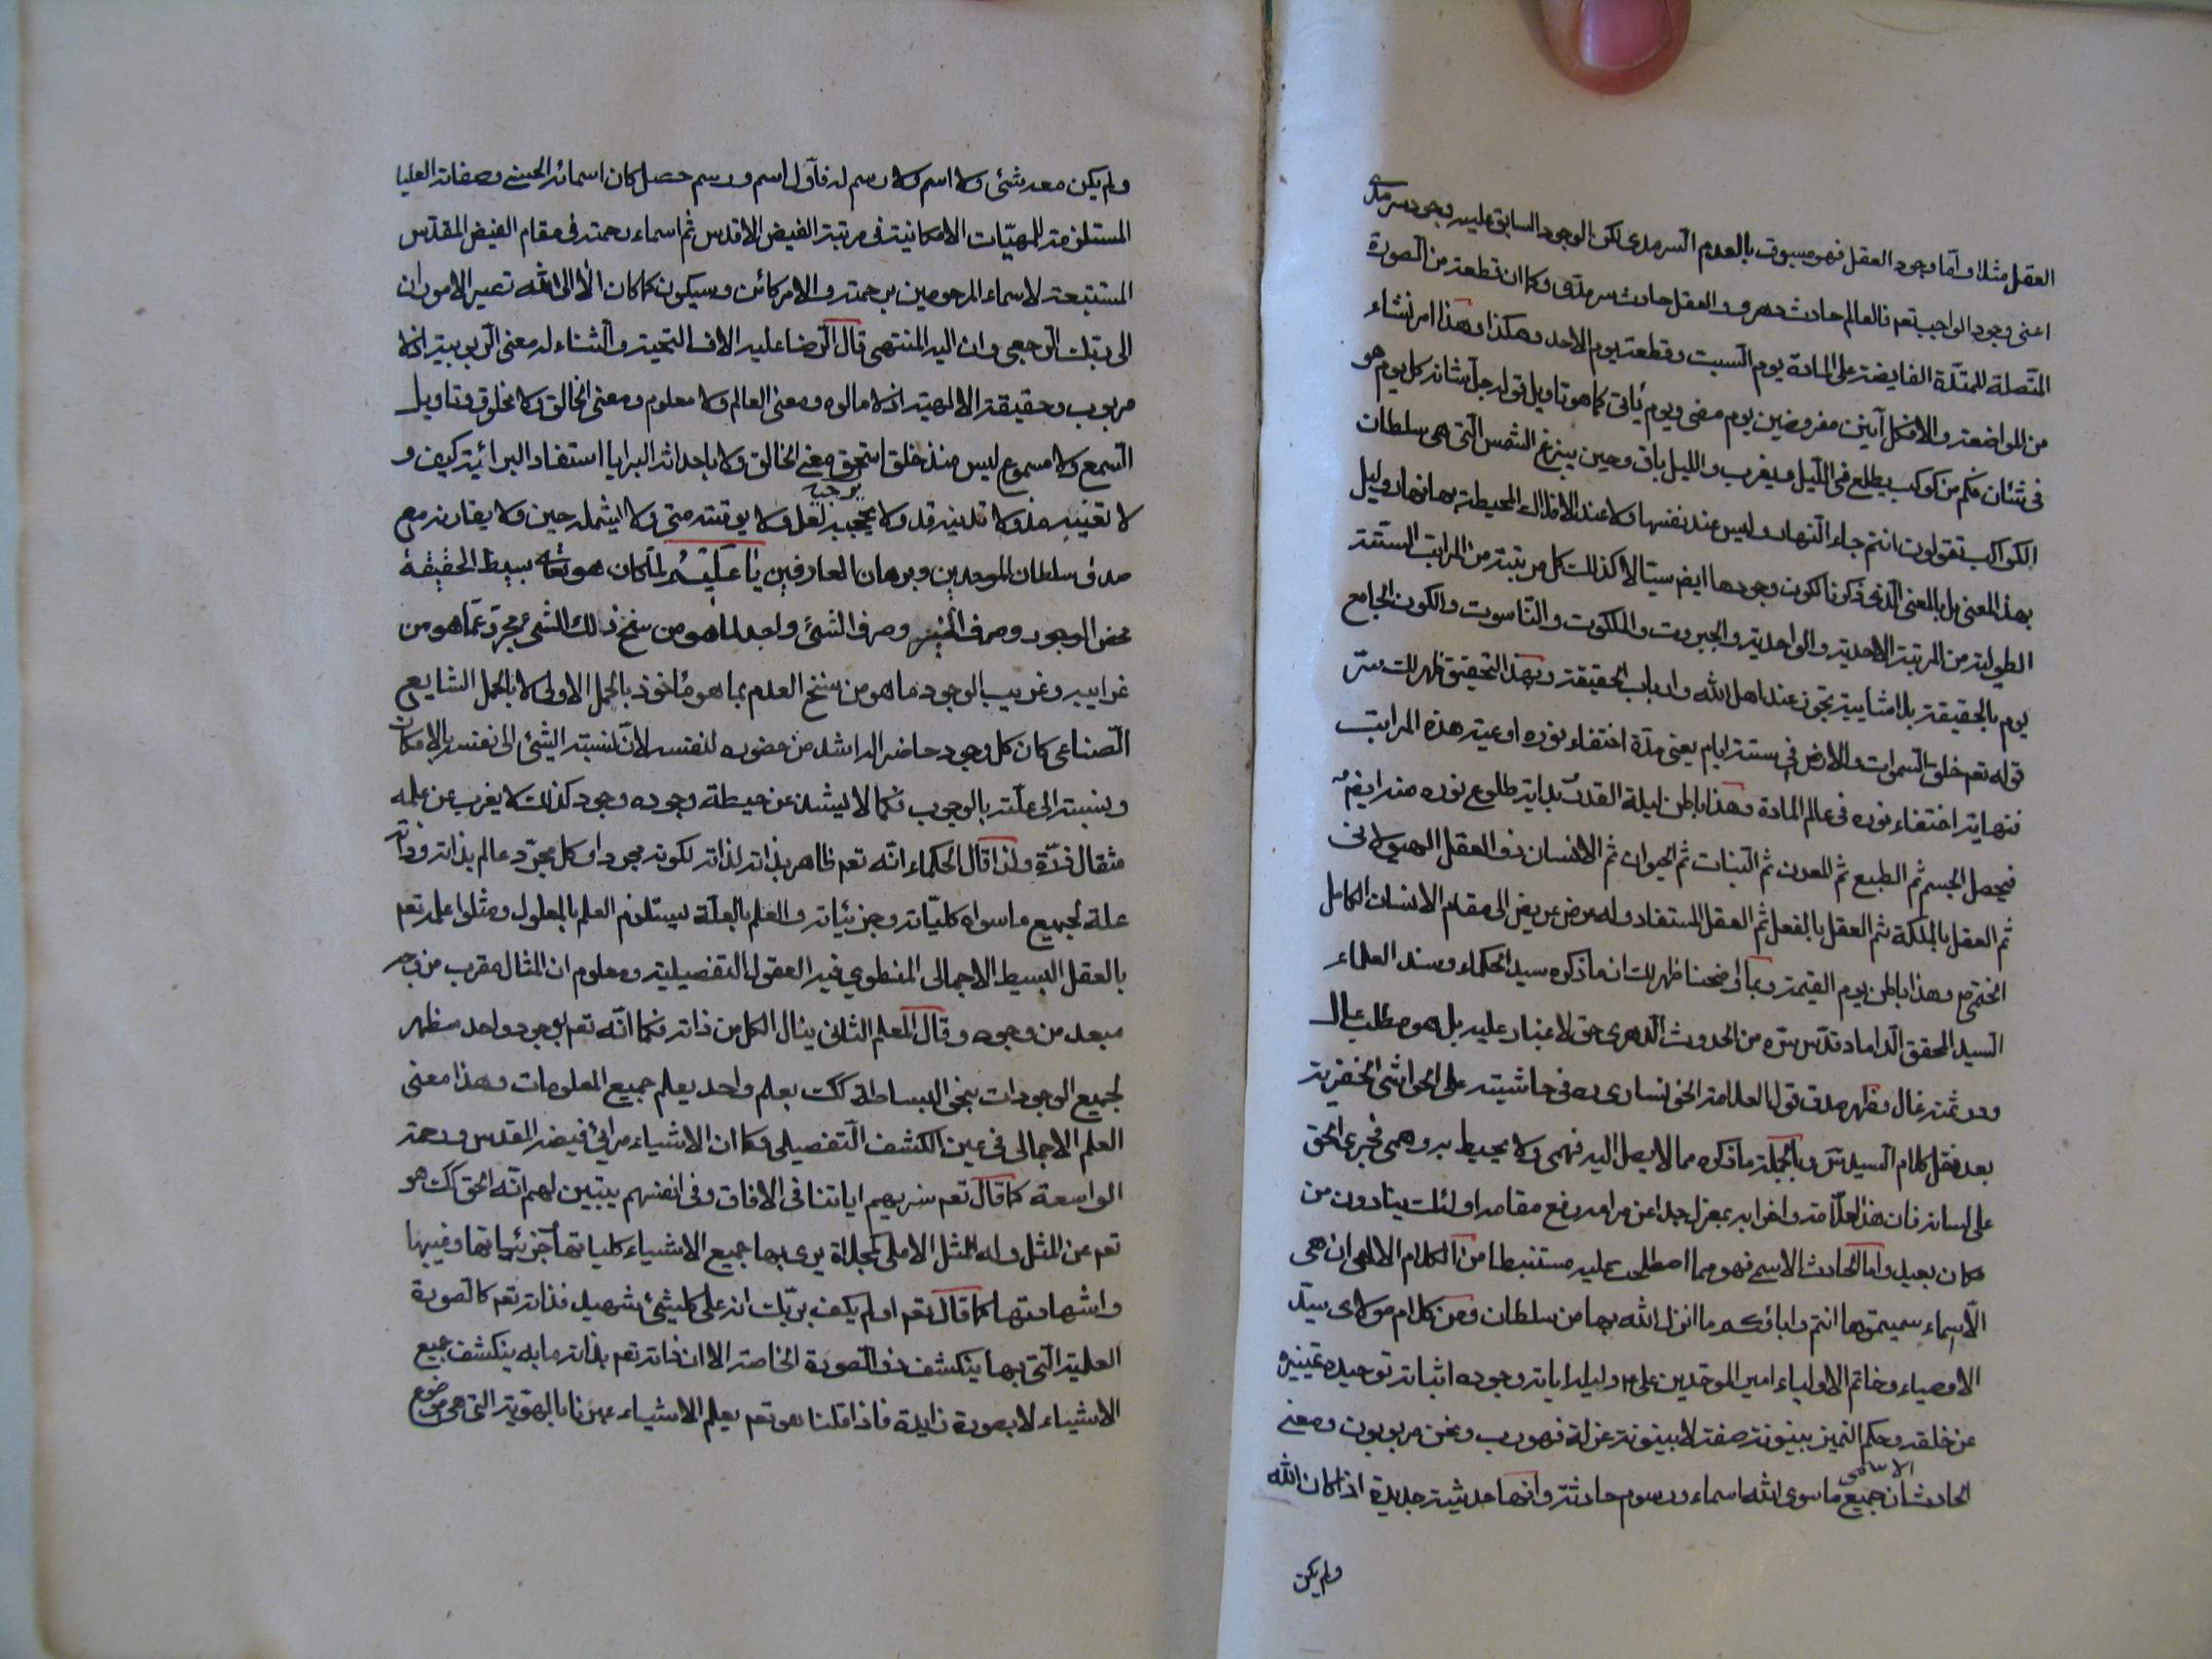 العقل مثلا و اما وجود العقل فهو مسبوق بالعدم السرمدى لكن الوجود السابق عليه وجود سرمدى
اعنى وجود الواجب تعم فالعالم حادث دهرى و العقل حادث سرمدى وكما ان قطعة من الصورة
المتصلة الممتدة الفايضة على المادة يوم السبت وقطعة يوم الاحد وهكذا وهذا امر نشاء
من المواضعة والا فكل آنين مفروضين يوم مضى ويوم يأتى كما هو تاويل قوله جل شانه كل يوم هو
فى شئان فكم من كوكب يطلع فى الليل ويغرب والليل باق وحين يبزغ الشمس التى هى سلطان
الكواكب تقولون انتم جاء النهار وليس عند نفسها ولا عند الافلاك المحيطة بها نهار وليل
بهذا المعنى بل بالمعنى الذى ذكرنا لكون وجودها ايض سيالا كذلك كل مرتبة من المراتب الستة
الطولية من المرتبة الاحدية والواحدية والجبروت والملكوت والناسوت والكون الجامع
يوم بالحقيقة بلا شايبة تجوز عند اهل الله وارباب الحقيقة وبهذا التحقيق ظهر لك سر
قوله تعم خلق السموات والارض فى ستة ايام يعنى مدة اختفاء نوره اوعية هذه المراتب
فنهاية اختفاء نوره فى عالم المادة وهذا باطن ليلة القدر بداية طلوع نوره منه ايض
فيحصل الجسم ثم الطبع ثم المعدن ثم النبات ثم الحيوان ثم الانسان ذو العقل الهيولانى
ثم العقل بالملكة ثم العقل بالفعل ثم العقل المستفاد وله عرض عريض الى مقام الانسان الكامل
الختمى ص وهذا باطن يوم القيمة وبما اوضحنا ظهر لك ان ما ذكره سيد الحكماء وسند العلماء
السيد المحقق الداماد قدس سره من الحدوث الدهرى حق لا غبار عليه بل هو مطلب عال
ودر ثمنه غال وظهر صدق قول العلامة الخونسارى ره فى حاشيته على الحواشى الخفرية
بعد نقل كلام السيد س وبالجملة ما ذكره مما لا يصل اليه فهمى ولا يحيط به وهمى فجرى الحق
على لسانه فان هذا العلامة واضرابه بمعزل جدا عن مرامه ورفع مقامه اولئك ينادون من
مكان بعيد واما الحادث الاسمى فهو مما اصطلحت عليه مستنبطا من الكلام الالهى ان هى
الا اسماء سميتموها انتم واباؤكم ما انزل الله بها من سلطان ومن كلام مولاى سيد
الاوصياء وخاتم الاولياء امير الموحدين على ع دليله اياته وجوده اثباته توحيده تمييزه
عن خلقه وحكم التميز بينونة صفة لا بينونة عزلة فهو رب ونحن مربوبون ومعنى
الاسمى
الحادث ان جميع ما سوى الله اسماء ورسوم حادثة وانها حديثة جديدة اذ كان الله
ولم يكن
ولم يكن معه شئ ولا اسم ولا رسم له فاول اسم ورسم حصل كان اسمائه الحسنى وصفاته العليا
المستلزمة للمهيات الامكانية فى مرتبة الفيض الاقدس ثم اسماء رحمته فى مقام الفيض المقدس
المستتبعة لاسماء المرحومين برحمته والامر كائن وسيكون كما كان الا الى الله تصير الامور ان
الى ربك الرجعى وان اليه المنتهى قال الرضا عليه الاف التحية والثناء له معنى الربوبية اذ لا
مربوب وحقيقة الالهية اذ لا مالوه ومعنى العالم ولا معلوم ومعنى الخالق ولا مخلوق وتاويل
السمع ولا مسموع ليس منذ خلق استحق معنى الخالق ولا باحداثه البرايا استفاد البرائية كيف و
لا تغيبه مذ ولا تدنيه قد ولا يحجبه لعل ولا يوقته متى ولا يشمله حين ولا يقارنه مع
صدق سلطان الموحدين وبرهان العارفين يا لما كان هو تعالى بسيط الحقيقة
محض الوجود وصرف الخير وصرف الشئ واجد لما هو من سنخ ذلك الشئ مجرد عما هو من
غرايبه وغريب الوجود ما هو من سنخ العدم بما هو مأخوذ بالحمل الاولى لا بالحمل الشايع
الصناعى كان كل وجود حاضرا له اشد من حضوره لنفسه لان نسبة الشئ الى نفسه بالامكان
ونسبته الى علته بالوجوب فكما لا يشذ عن حيطة وجوده وجود كذلك لا يغرب عن علمه
مثقال ذرة ولذا قال الحكماء انه تعم ظاهر بذاته لذاته لكونه مجردا وكل مجرد عالم بذاته وذاته
علة لجميع ما سواه كلياته وجزئياته والعلم بالعلة يستلزم العلم بالمعلول ومثلوا علمه تعم
بالعقل البسيط الاجمالى المنطوى فيه العقول التفصيلية ومعلوم ان المثال مقرب من وجه
مبعد من وجوه وقال المعلم الثانى ينال الكل من ذاته فكما انه تعم بوجود واحد مظهر
لجميع الوجودات بنحو البساطة كك بعلم واحد يعلم جميع المعلومات وهذا معنى
العلم الاجمالى فى عين الكشف التفصيلى وكما ان الاشياء مرائى فيضه المقدس ورحمته
الواسعة كما قال تعم سنريهم اياتنا فى الافاق وفى انفسهم يتبين لهم انه الحق كك هو
تعم عن المثل وله المثل الاعلى كمجلاة يرى بها جميع الاشياء كلياتها وجزئياتها وغيبها
واشهادتها كما قال تعم اولم يكف بربك انه على كل شئ شهيد فذاته تعم كالصورة
العلمية التى بها ينكشف ذو الصورة الخاصة الا ان ذاته تعم بذاته ما به ينكشف جميع
الاشياء لا بصورة زايدة فاذا قلنا هو تعم يعلم الاشياء عبرنا بالهوية التى هى موضوع